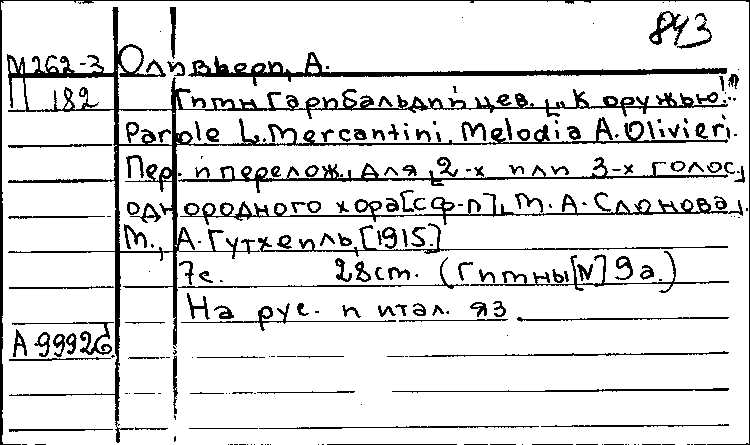 843
М262-3 Оливьери, А.
П 182 Гимн Гарибальдийцев. „К оружью!"
Parole L. Mercantini. Melodia A. Olivieri.
Пер. и перелож. для 2-х или 3-х голос.
однородного хора [с ф-п] М. А. Слонова.
М., А. Гутхейль, [1915.]
7с. 28cm. (Гимны [N] 9а.)
На рус. и итал. яз.
А 9992б